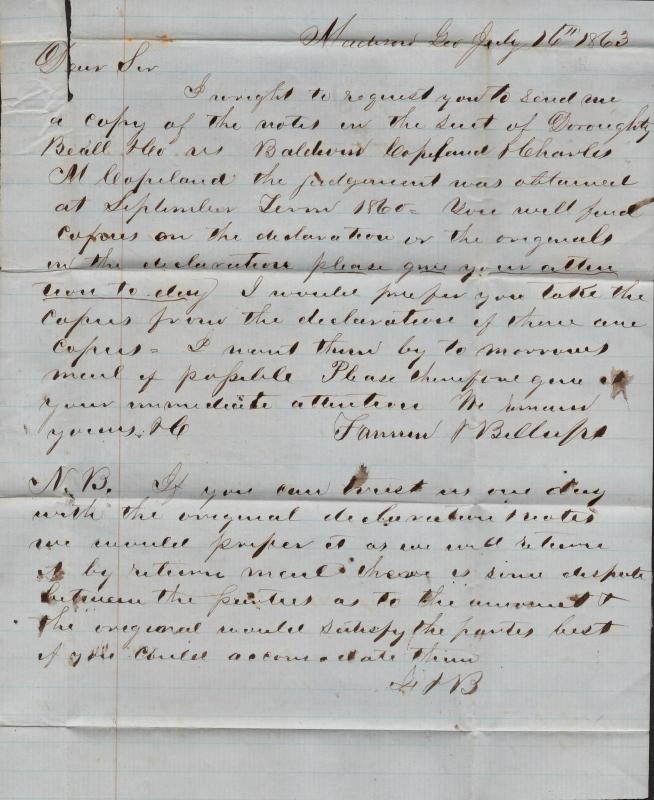 Madison Geo July 16th 1863
Dear Sir
I wright to request you to send me
a copy of the notes in the suit of Doroughty
Beall & Co vs Baldwin Copeland & Charles
M Copeland the judgement was obtained
at September Term 1860 = You will find
copies on the declaration or the originals
in the declaration please give your atten
tion to day I would prefer you take the
copies from the declaration if there are
copies = I want them by to morrows
mail if possible Please therefore give it
your immediate attention We remain
yours &C Fannin & Billups
N. B. If you can trust us one day
with the original declaration & notes
we would prefer it as we will return
it by return mail there is some dispute
between the parties as to the amount &
the original would satisfy the parties best
if you could accomodate them
F & B